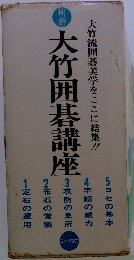 新解
大竹流囲碁美学をここに結集!!
大竹囲碁講座
1 定石の運用
2 布石の常識
3 攻防の急所
4 手筋の威力
5 コセの基本